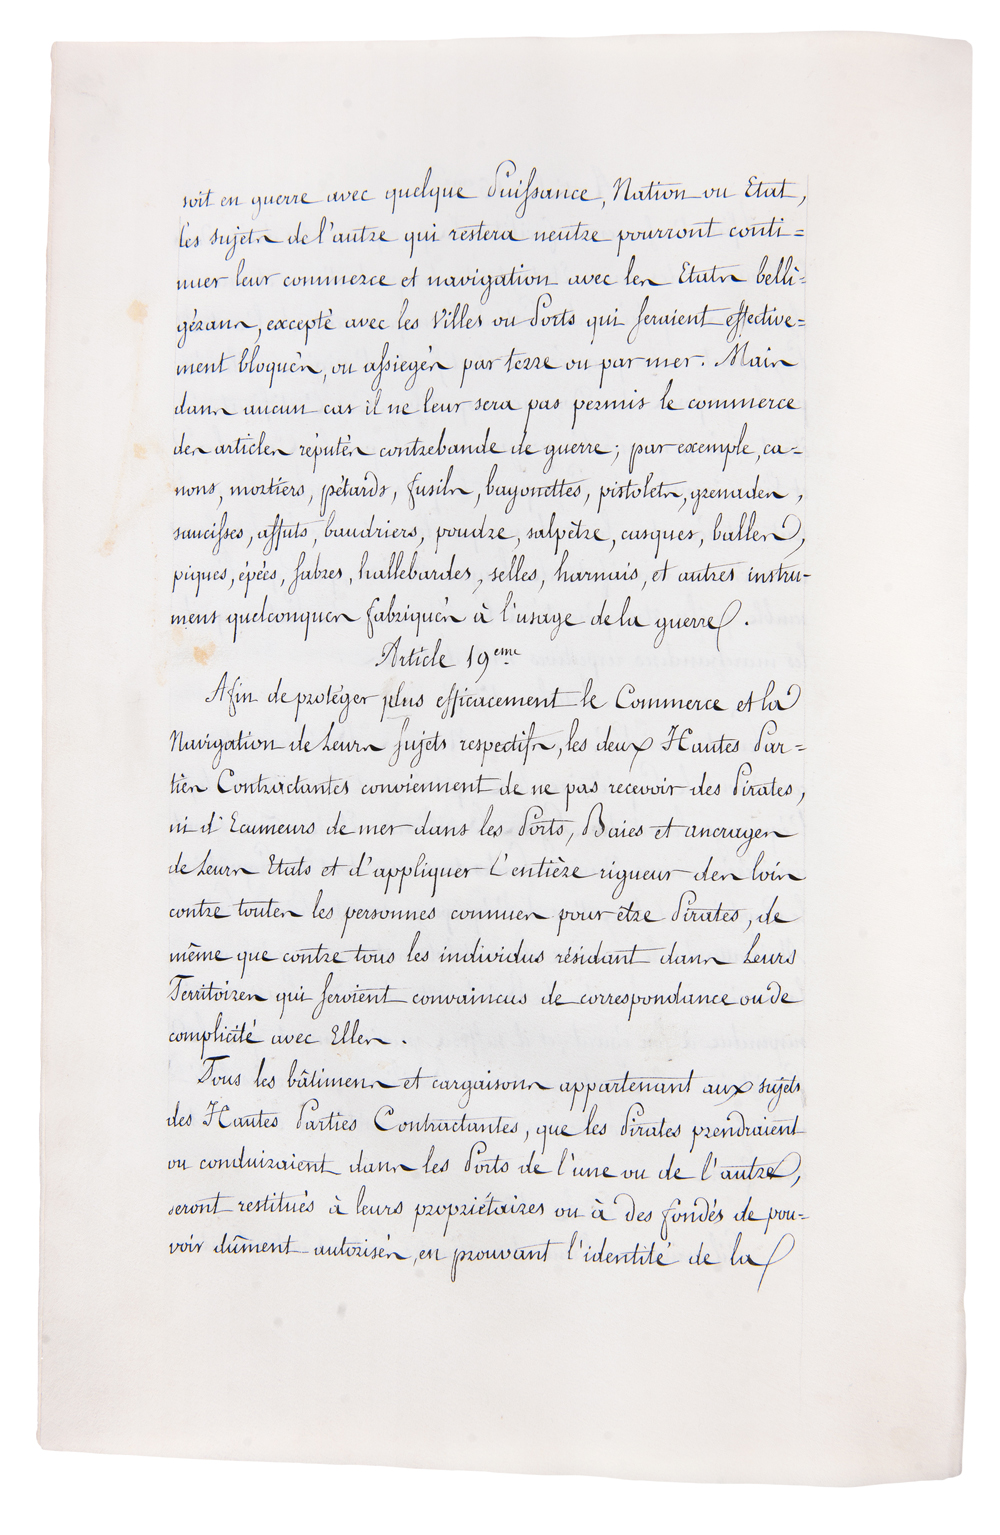 soit en guerre avec quelque Puissance, Nation ou Etat,
les sujets de l'autre qui restera neutre pourront conti=
nuer leur commerce et navigation avec les Etats belli=
gérans, excepté avec les Villes ou Ports qui seraient effective=
ment bloqués, ou assiegés par terre ou par mer. Mais
dans aucun cas il ne leur sera pas permis le commerce
des articles réputés contrebande de guerre; par exemple, ca=
nons, mortiers, pétards, fusils, bayonettes, pistolets, grenades,
saucisses, affuts, baudriers, poudre, salpêtre, casques, balles,
piques, épées, sabres, hallebardes, selles, harnais, et autres instru-
mens quelconques fabriqués à l'usage de la guerre.
Article 19eme
Afin de protéger plus efficacement le Commerce et la
Navigation de Leurs sujets respectifs, les deux Hautes Par=
ties Contractantes conviennent de ne pas recevoir des Pirates,
ni d'Ecumeurs de mer dans les Ports, Baies et ancrages
de Leurs Etats et d'appliquer l'entière rigueur des lois
contre toutes les personnes connues pour être Pirates, de
même que contre tous les individus résidant dans Leurs
Territoires qui seroient convaincus de correspondance ou de
complicité avec Elles.
Tous les bâtimens et cargaisons appartenant aux sujets
des Hautes Parties Contractantes, que les Pirates prendraient
ou conduiraient dans les Ports de l'une ou de l'autre,
seront restitués à leurs propriétaires ou à des fondés de pou=
voir dûment autorisés, en prouvant l'identité de la